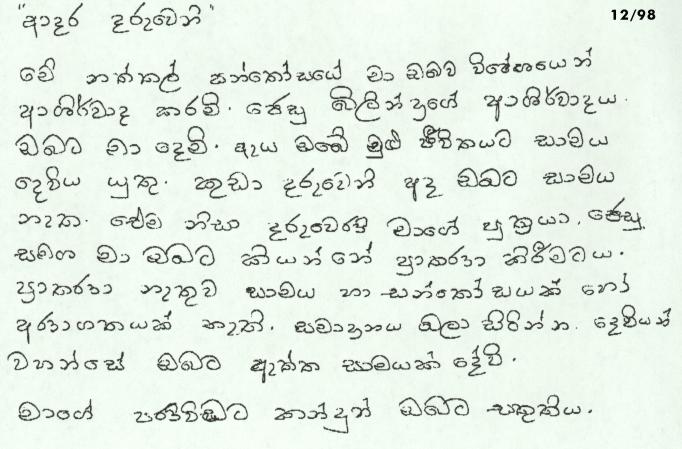 "ආදර දරුවෙනි"
12/98
මේ නත්තල් සන්තෝසයේ මා ඔබව විශේශයෙන්
ආශිර්වාද කරමි. ජේසු බිලින්දුගේ ආශිර්වාදය
ඔබට මා දෙමි. ඇය ඔබේ මුළු ජීවිතයට සාමය
දෙවිය යුතු. කුඩා දරුවෙනි අද ඔබට සාමය
නැත. එම නිසා දරුවෙනි මාගේ පුත්‍රයා, ජේසු
සමඟ මා ඔබට කියන්නේ ප්‍රාතරනා කිරීමටය.
ප්‍රාතරනා නැතුව සාමය හා සන්තෝසයක් හෝ
අනාගතයක් නැති. සමාදානය බලා සිටින්න. දෙවියන්
වහන්සේ ඔබට ඇත්ත සාමයක් දේවි.
මාගේ පනිවිඩයට කාන්දුන් ඔබට සතුතිය.